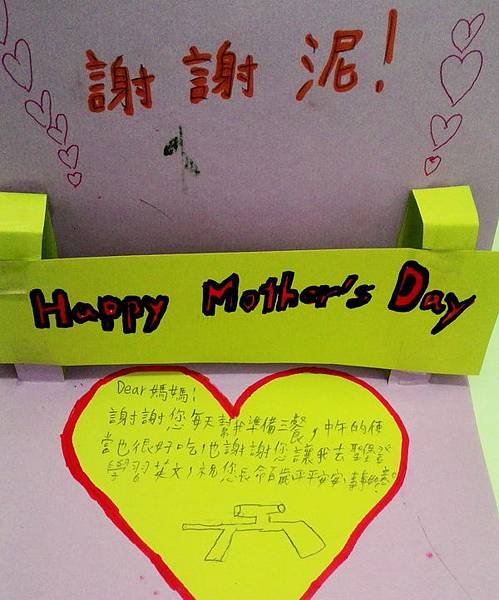 謝謝泥!
Happy Mother's Day
Dear媽媽:
謝謝您每天幫我準備三餐,中午的便
當也很好吃,也謝謝您讓我去
學習英文,祝您長命百歲平平安安